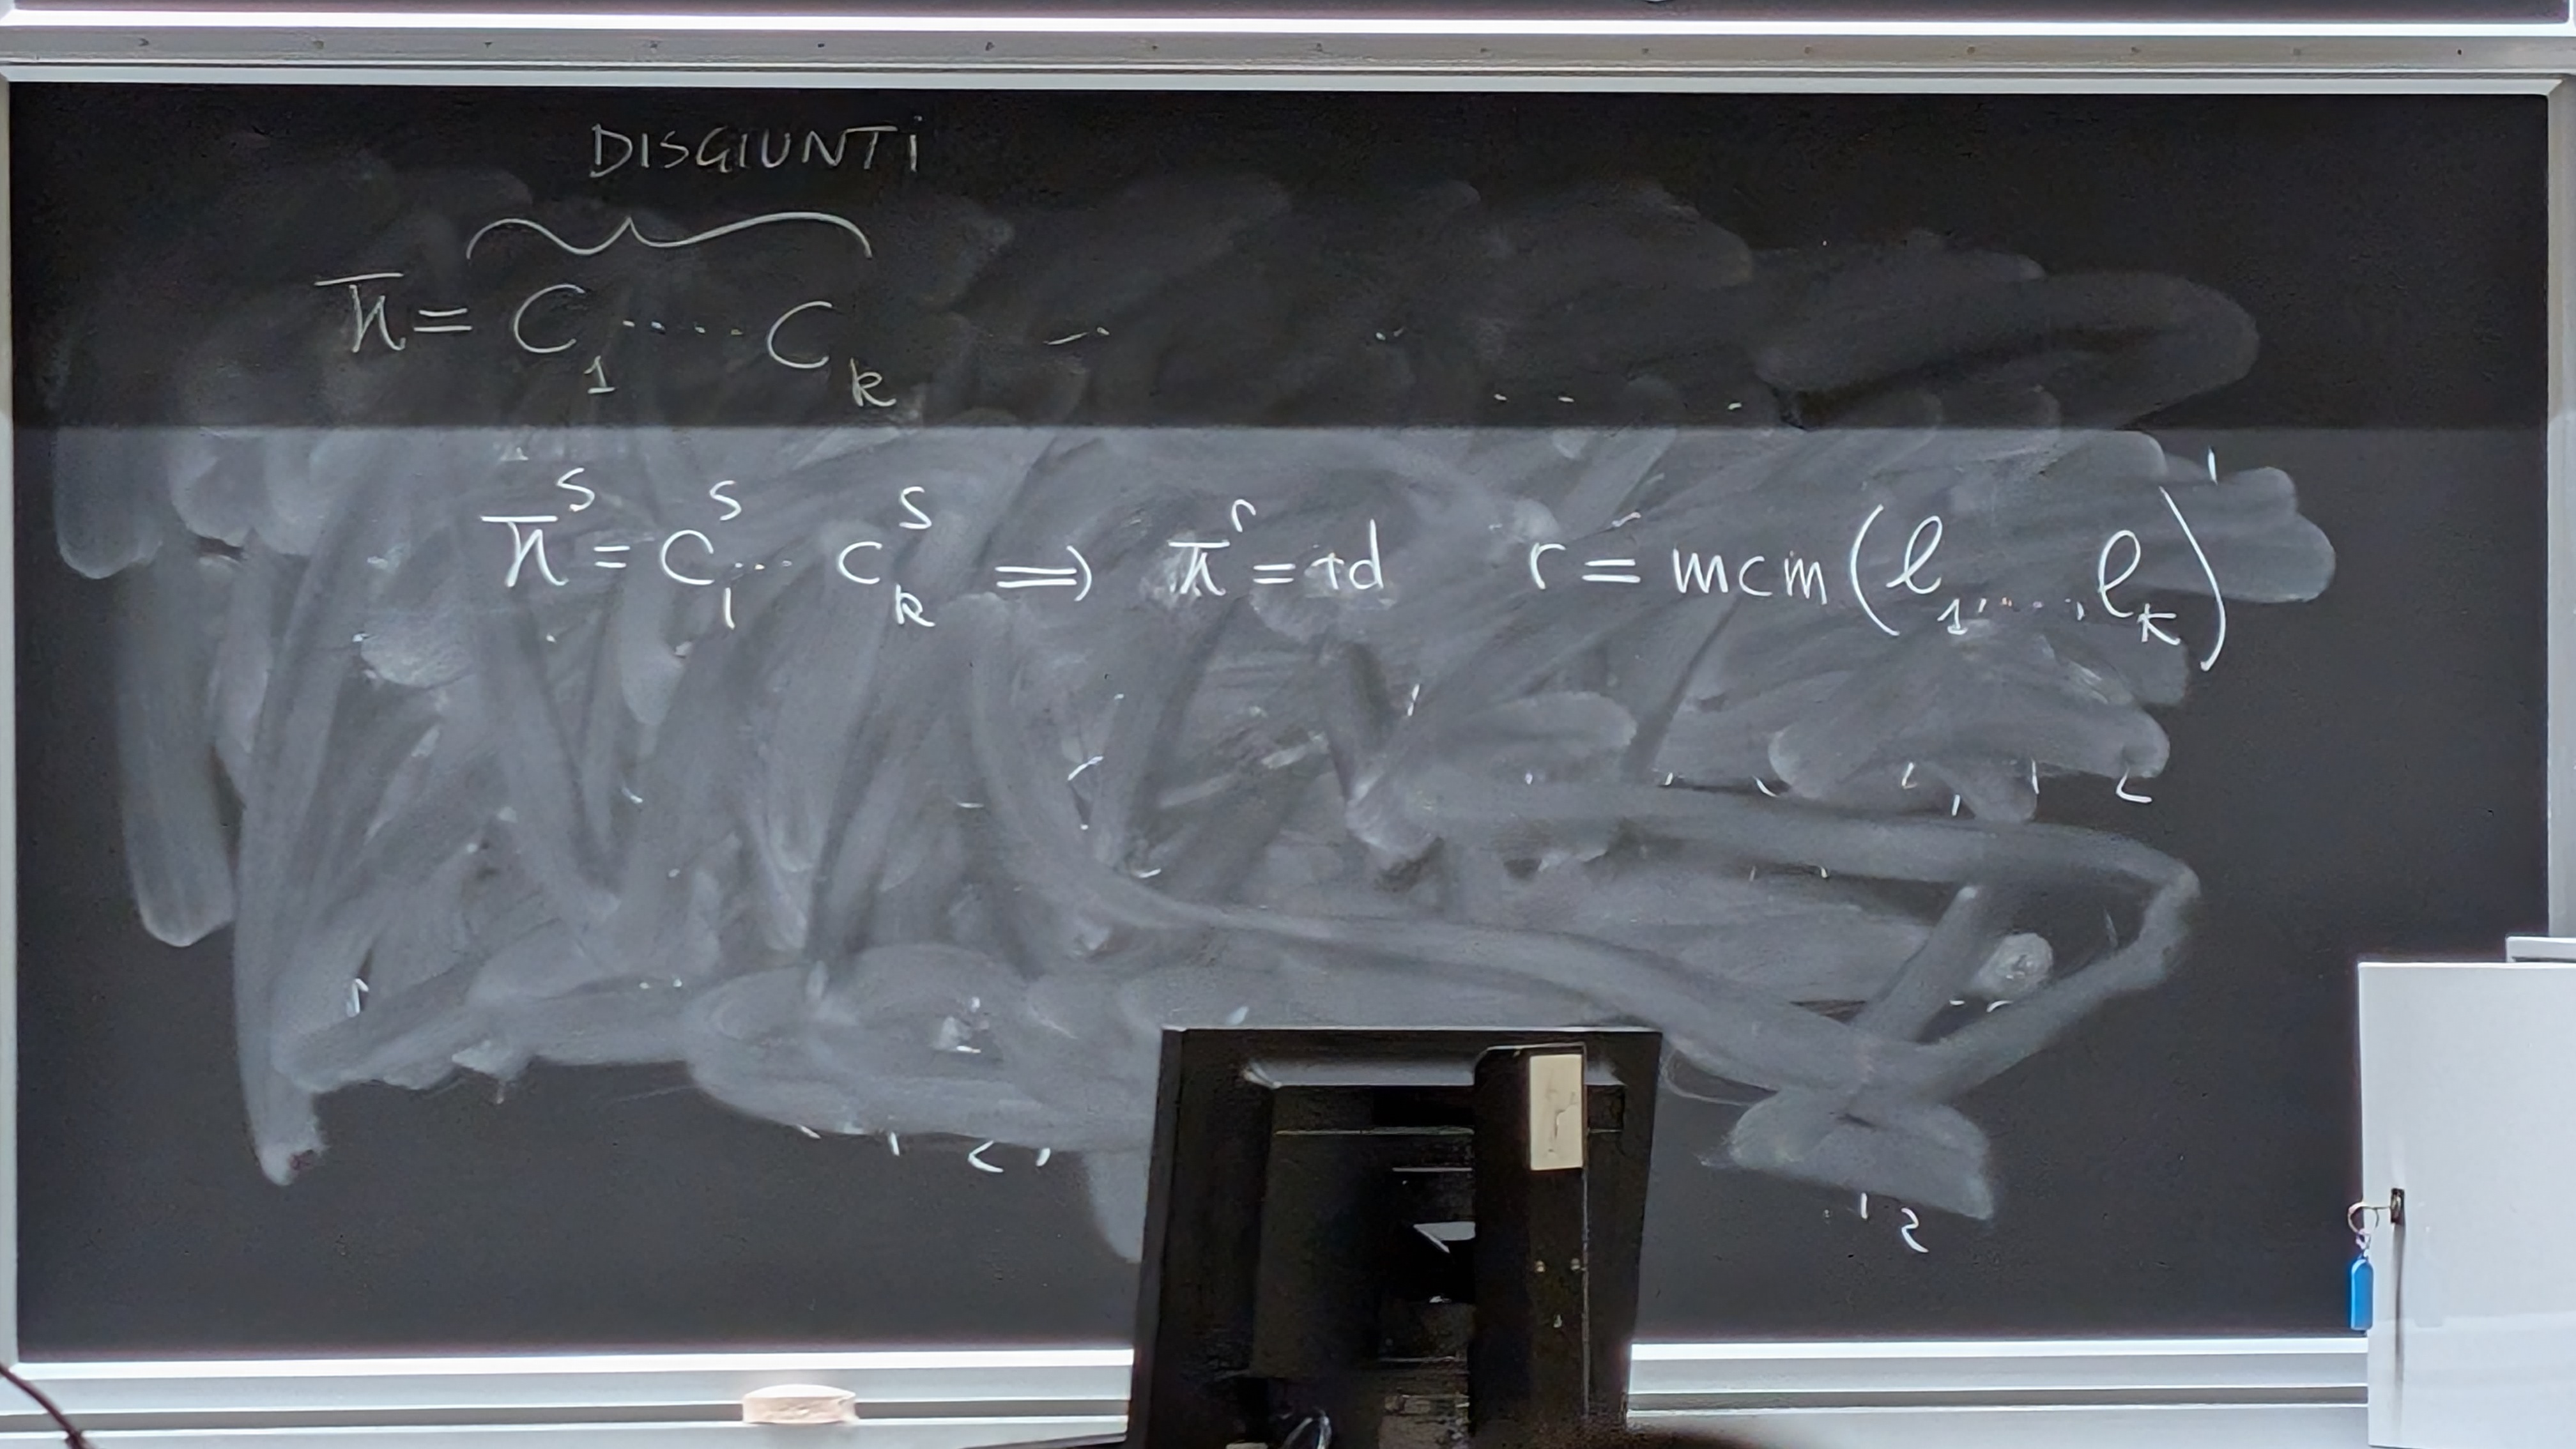 DISGIUNTI
π = C₁ ..... Cₖ
πˢ = C₁ˢ ... Cₖˢ ⟹ πʳ = id r = mcm(ℓ₁, ..., ℓₖ)